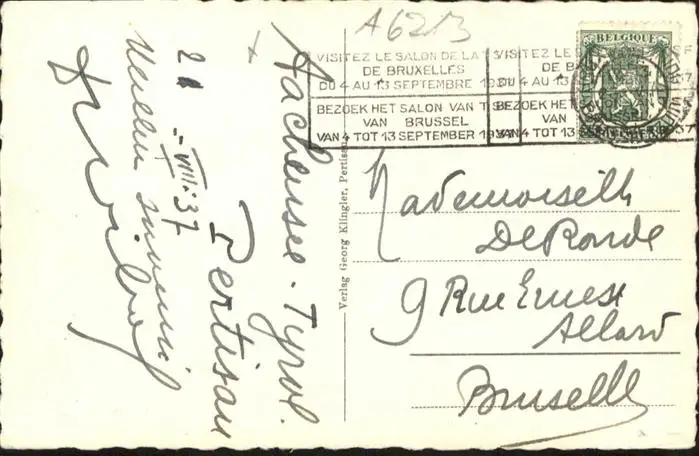 A6213
BELGIQUE
VISITEZ LE SALON DE LA
DE BRUXELLES
DU 4 AU 13 SEPTEMBRE 1937
BEZOEK HET SALON VAN
VAN BRUSSEL
VAN 4 TOT 13 SEPTEMBER 1937
VISITEZ LE
DU 4 AU 13
BEZOEK HET
VAN 4 TOT 13
Aachensee - Tyrol.
Pertisau
21 - VIII - 37
Verlag Georg Klingler, Pertisau
Mademoiselle
De Ronde
9 Rue Ernest
Allard
Bruxelles